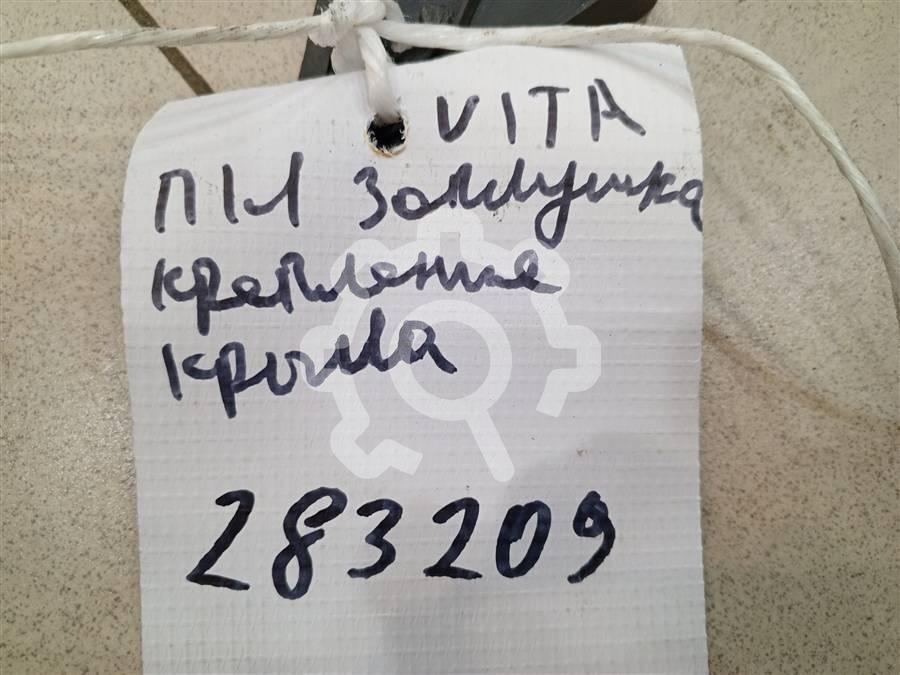 VITA
П/Л Заглушка
крепление
крыла
283209